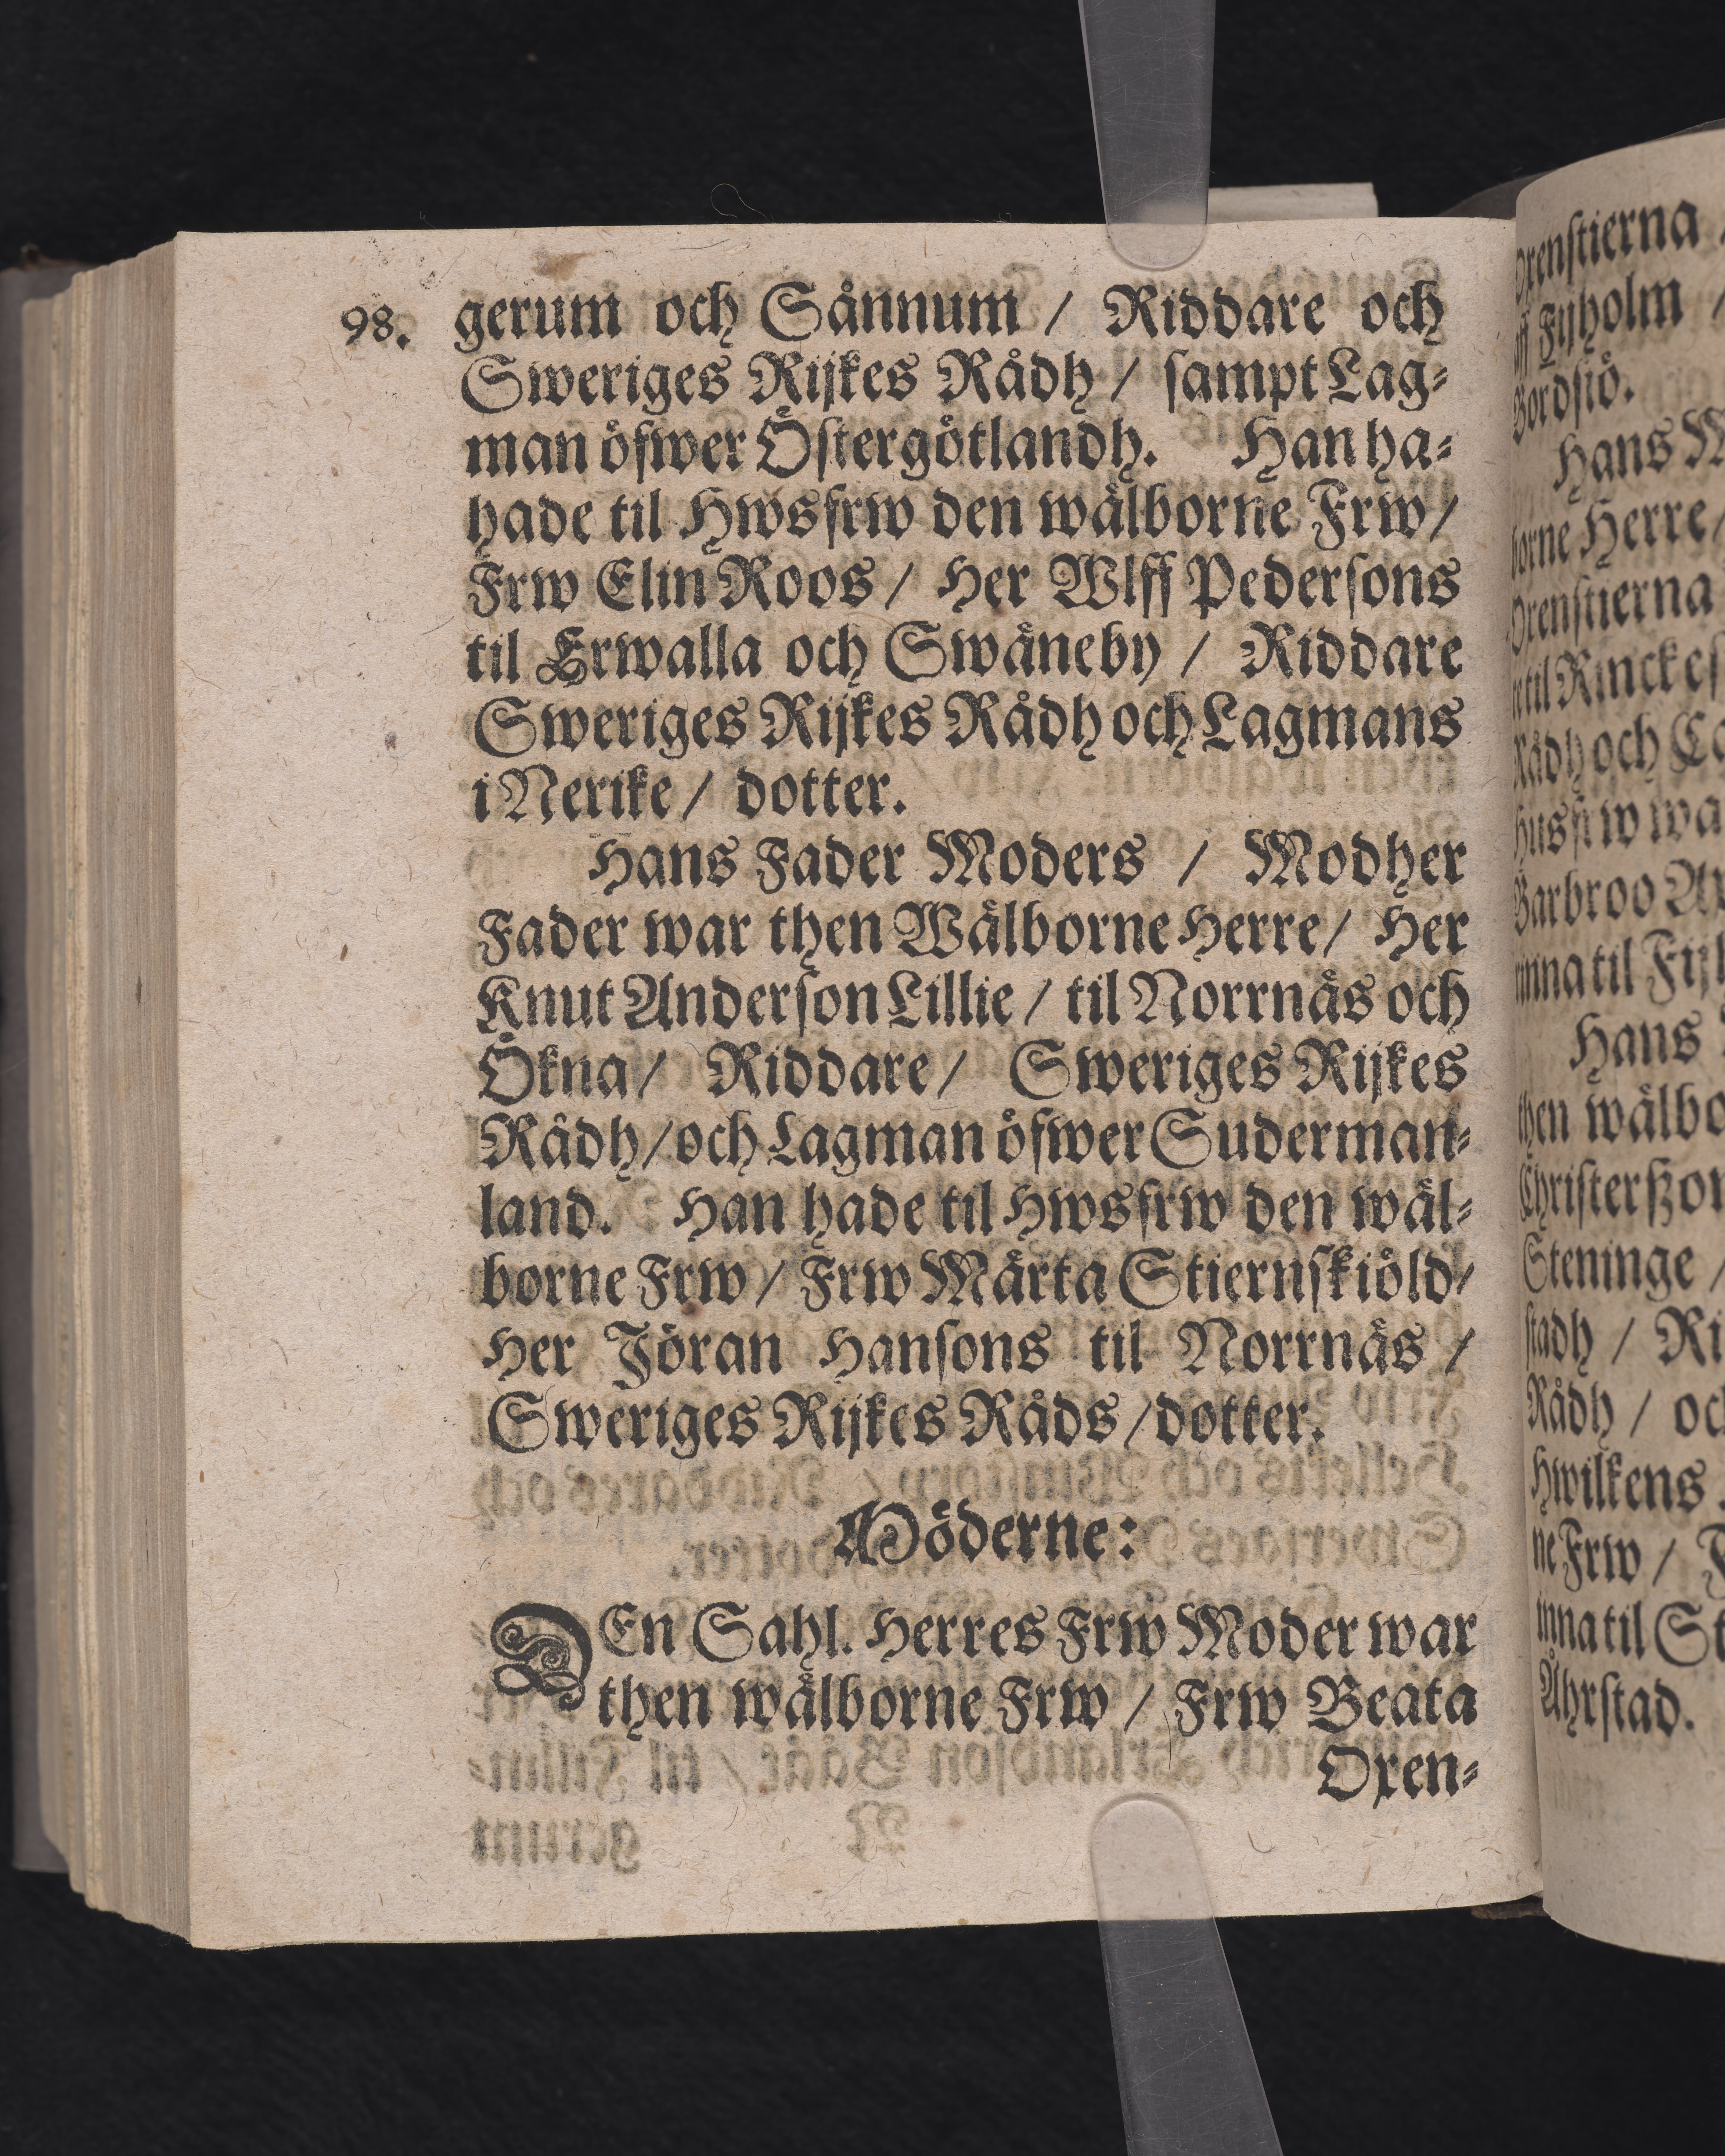 98. gerum och Sånnum / Riddare och
Sweriges Rijkes Rådh / sampt Lag-
man öfwer Östergötlandh. Han ha-
hade til Hwsfrw den wälborne Frw /
Frw Elin Roos / Her Wlff Pedersons
til Erwalla och Swäneby / Riddare
Sweriges Rijkes Rådh och Lagmans
i Nerike / dotter.
Hans Fader Moders / Modher
Fader war then Wälborne Herre / Her
Knut Anderson Lillie / til Norrnäs och
Ökna / Riddare / Sweriges Rijkes
Rådh / och Lagman öfwer Suderman-
land. Han hade til Hwsfrw den wäl-
borne Frw / Frw Märta Stiernskiöld /
Her Jöran Hansons til Norrnäs /
Sweriges Rijkes Råds / dotter.
Möderne:
DEn Sahl. Herres Frw Moder war
then wälborne Frw / Frw Beata
Oxen-
Oxenstierna
Fijholm /
Hans
borne Herre /
Oxenstierna
til
Rådh och
Barbroo
til
Hans
then
Steninge /
stadh /
Rådh /
Hwilkens
ne Frw /
til
Åhrstad.